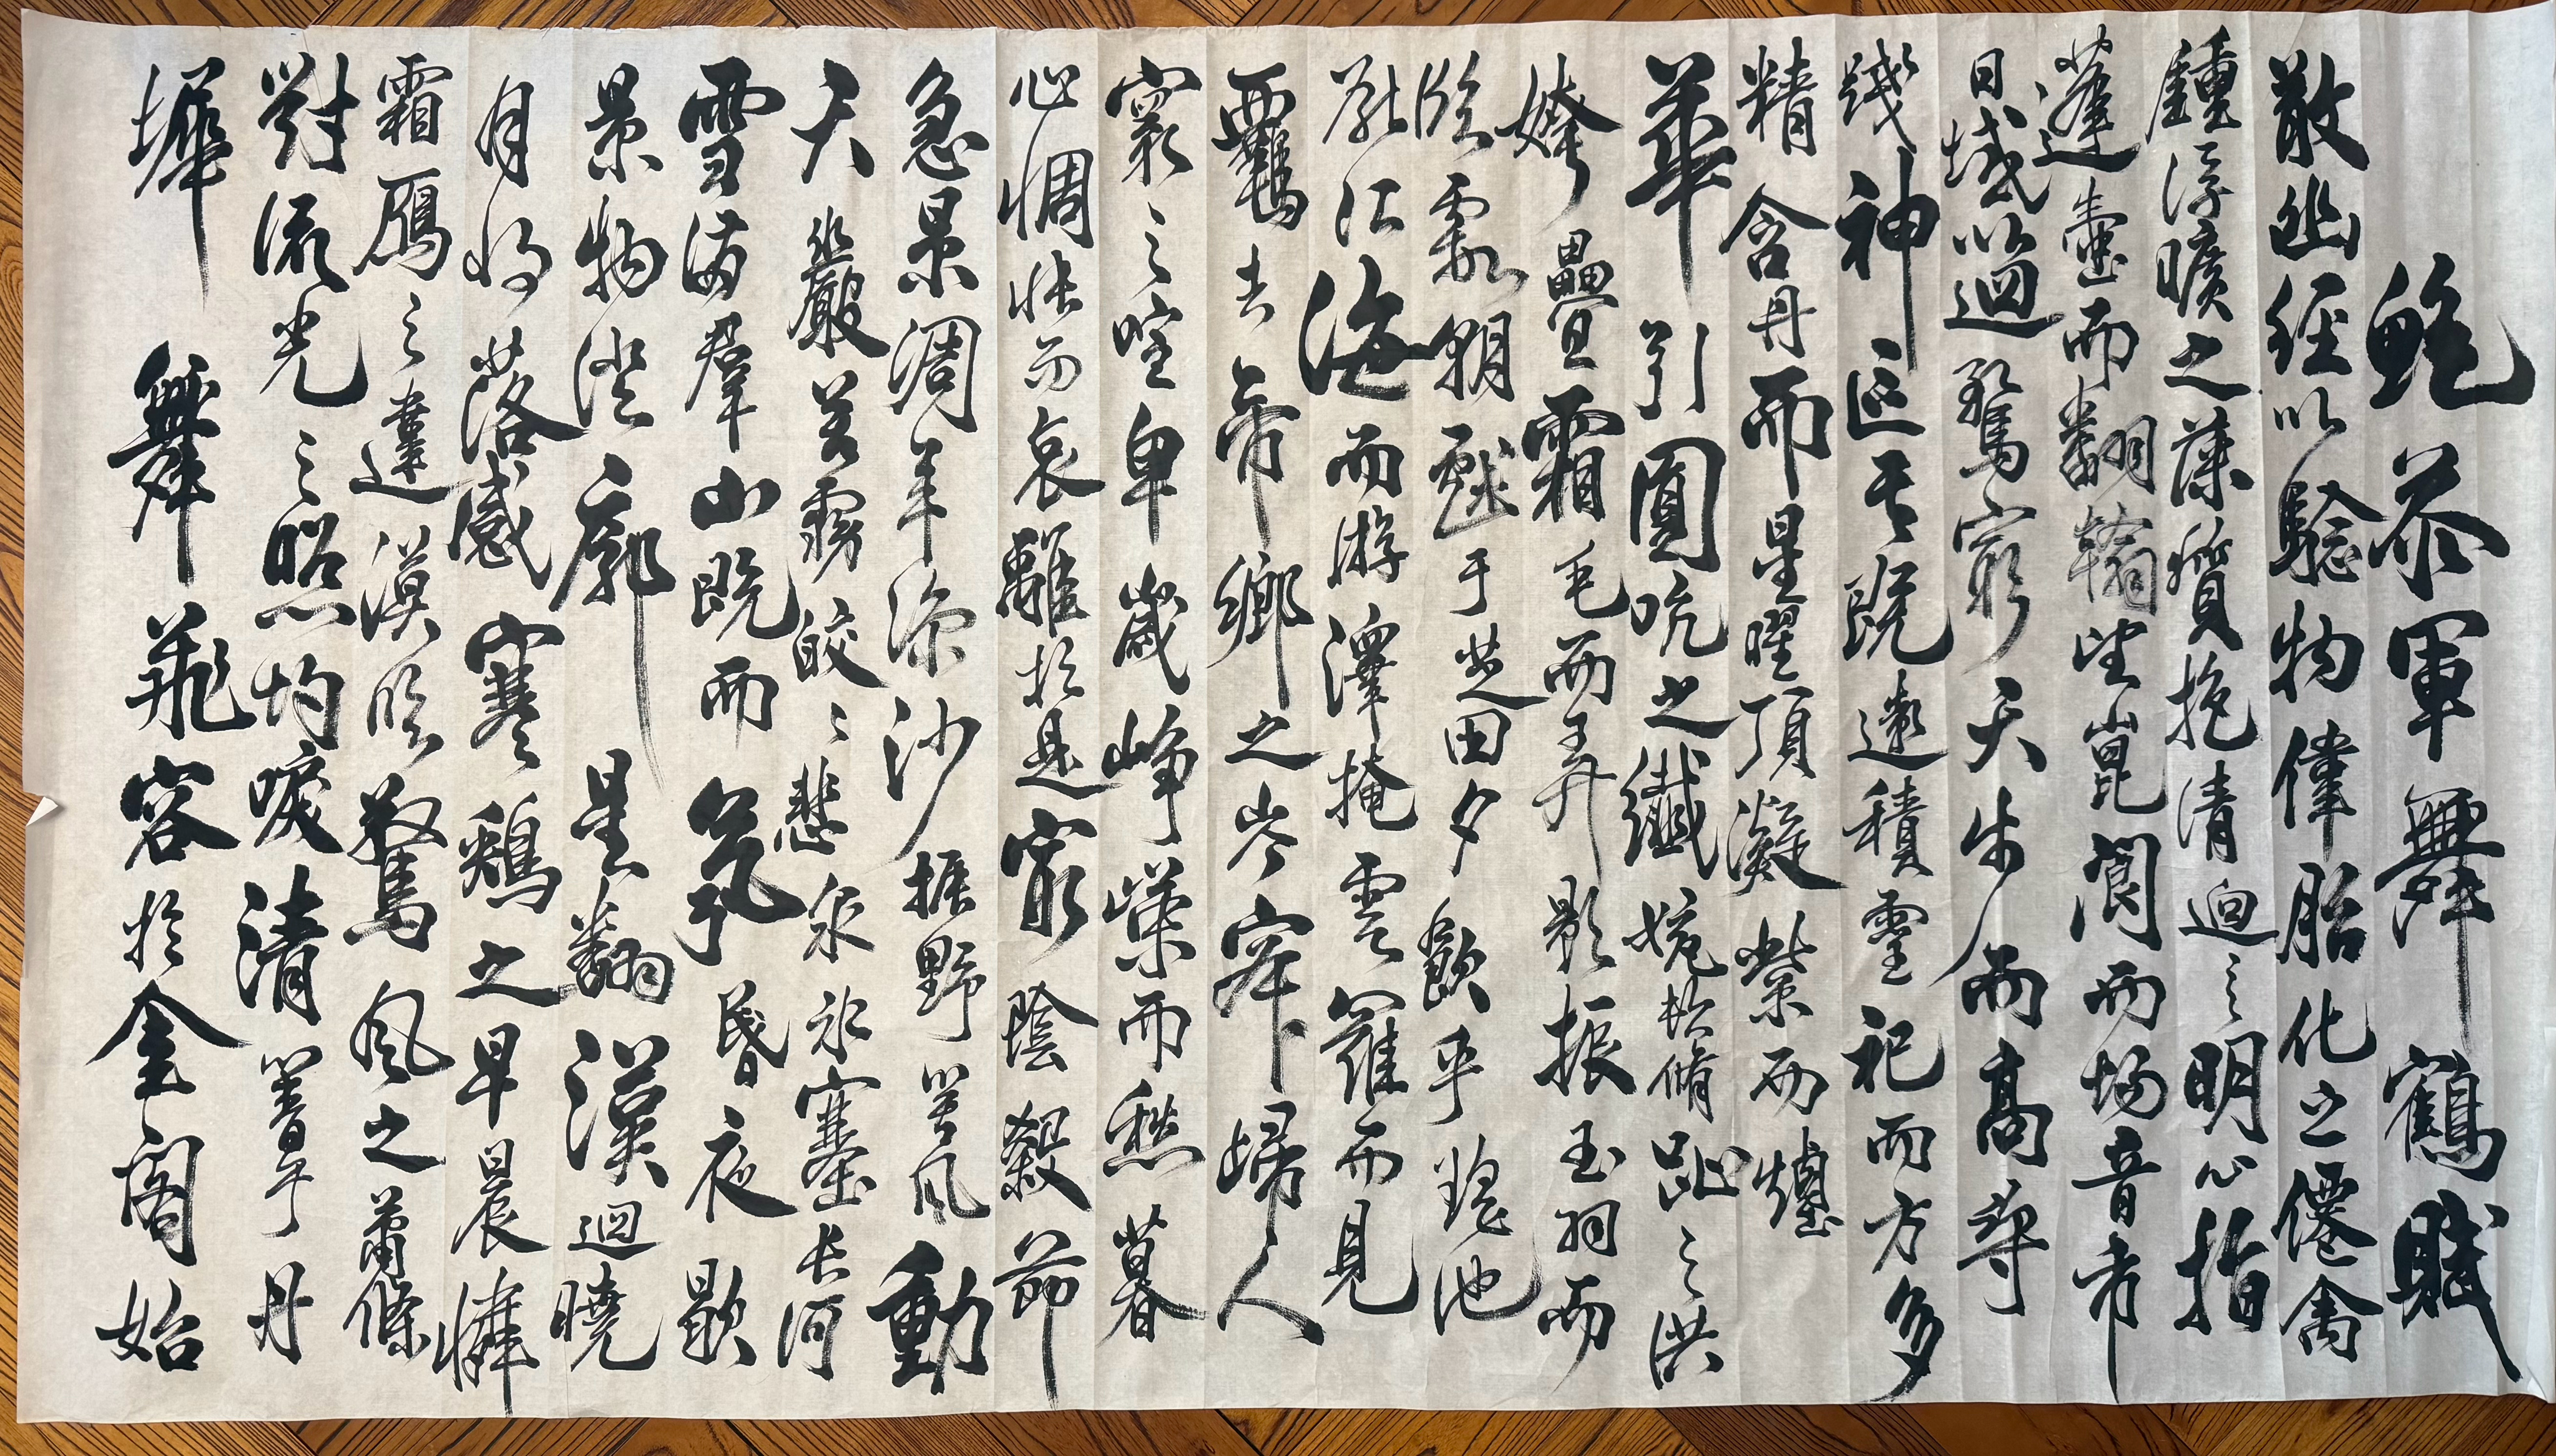 鮑參軍舞鶴賦
散幽經以驗物偉胎化之僊禽
鍾浮曠之藻質抱清迥之明心指
蓬壺而翻翰望崑閬而揚音帀
日域以迴騖窮天步而高尋
踐神區其既遠積靈祀而方多
精含丹而星曜頂凝紫而煙
華引圓吭之纖婉頓脩趾之洪
姱疊霜毛而弄影振玉羽而
臨霞朝戲于芝田夕飲乎瑤池
厭江海而游澤掩雲羅而見
羈去帝鄉之岑寂歸人
寰之喧卑歲崢嶸而愁暮
心惆悵而哀離於是窮陰殺節
急景凋年涼沙振野箕風動
天嚴嚴苦霧皎皎悲泉冰塞長河
雪滿群山既而氛昏夜歇
景物澄廓星翻漢迴曉
月將落感寒雞之早晨憐
霜鴈之違漠臨驚風之蕭條
對流光之照灼唳清響于丹
墀舞飛容於金閣始